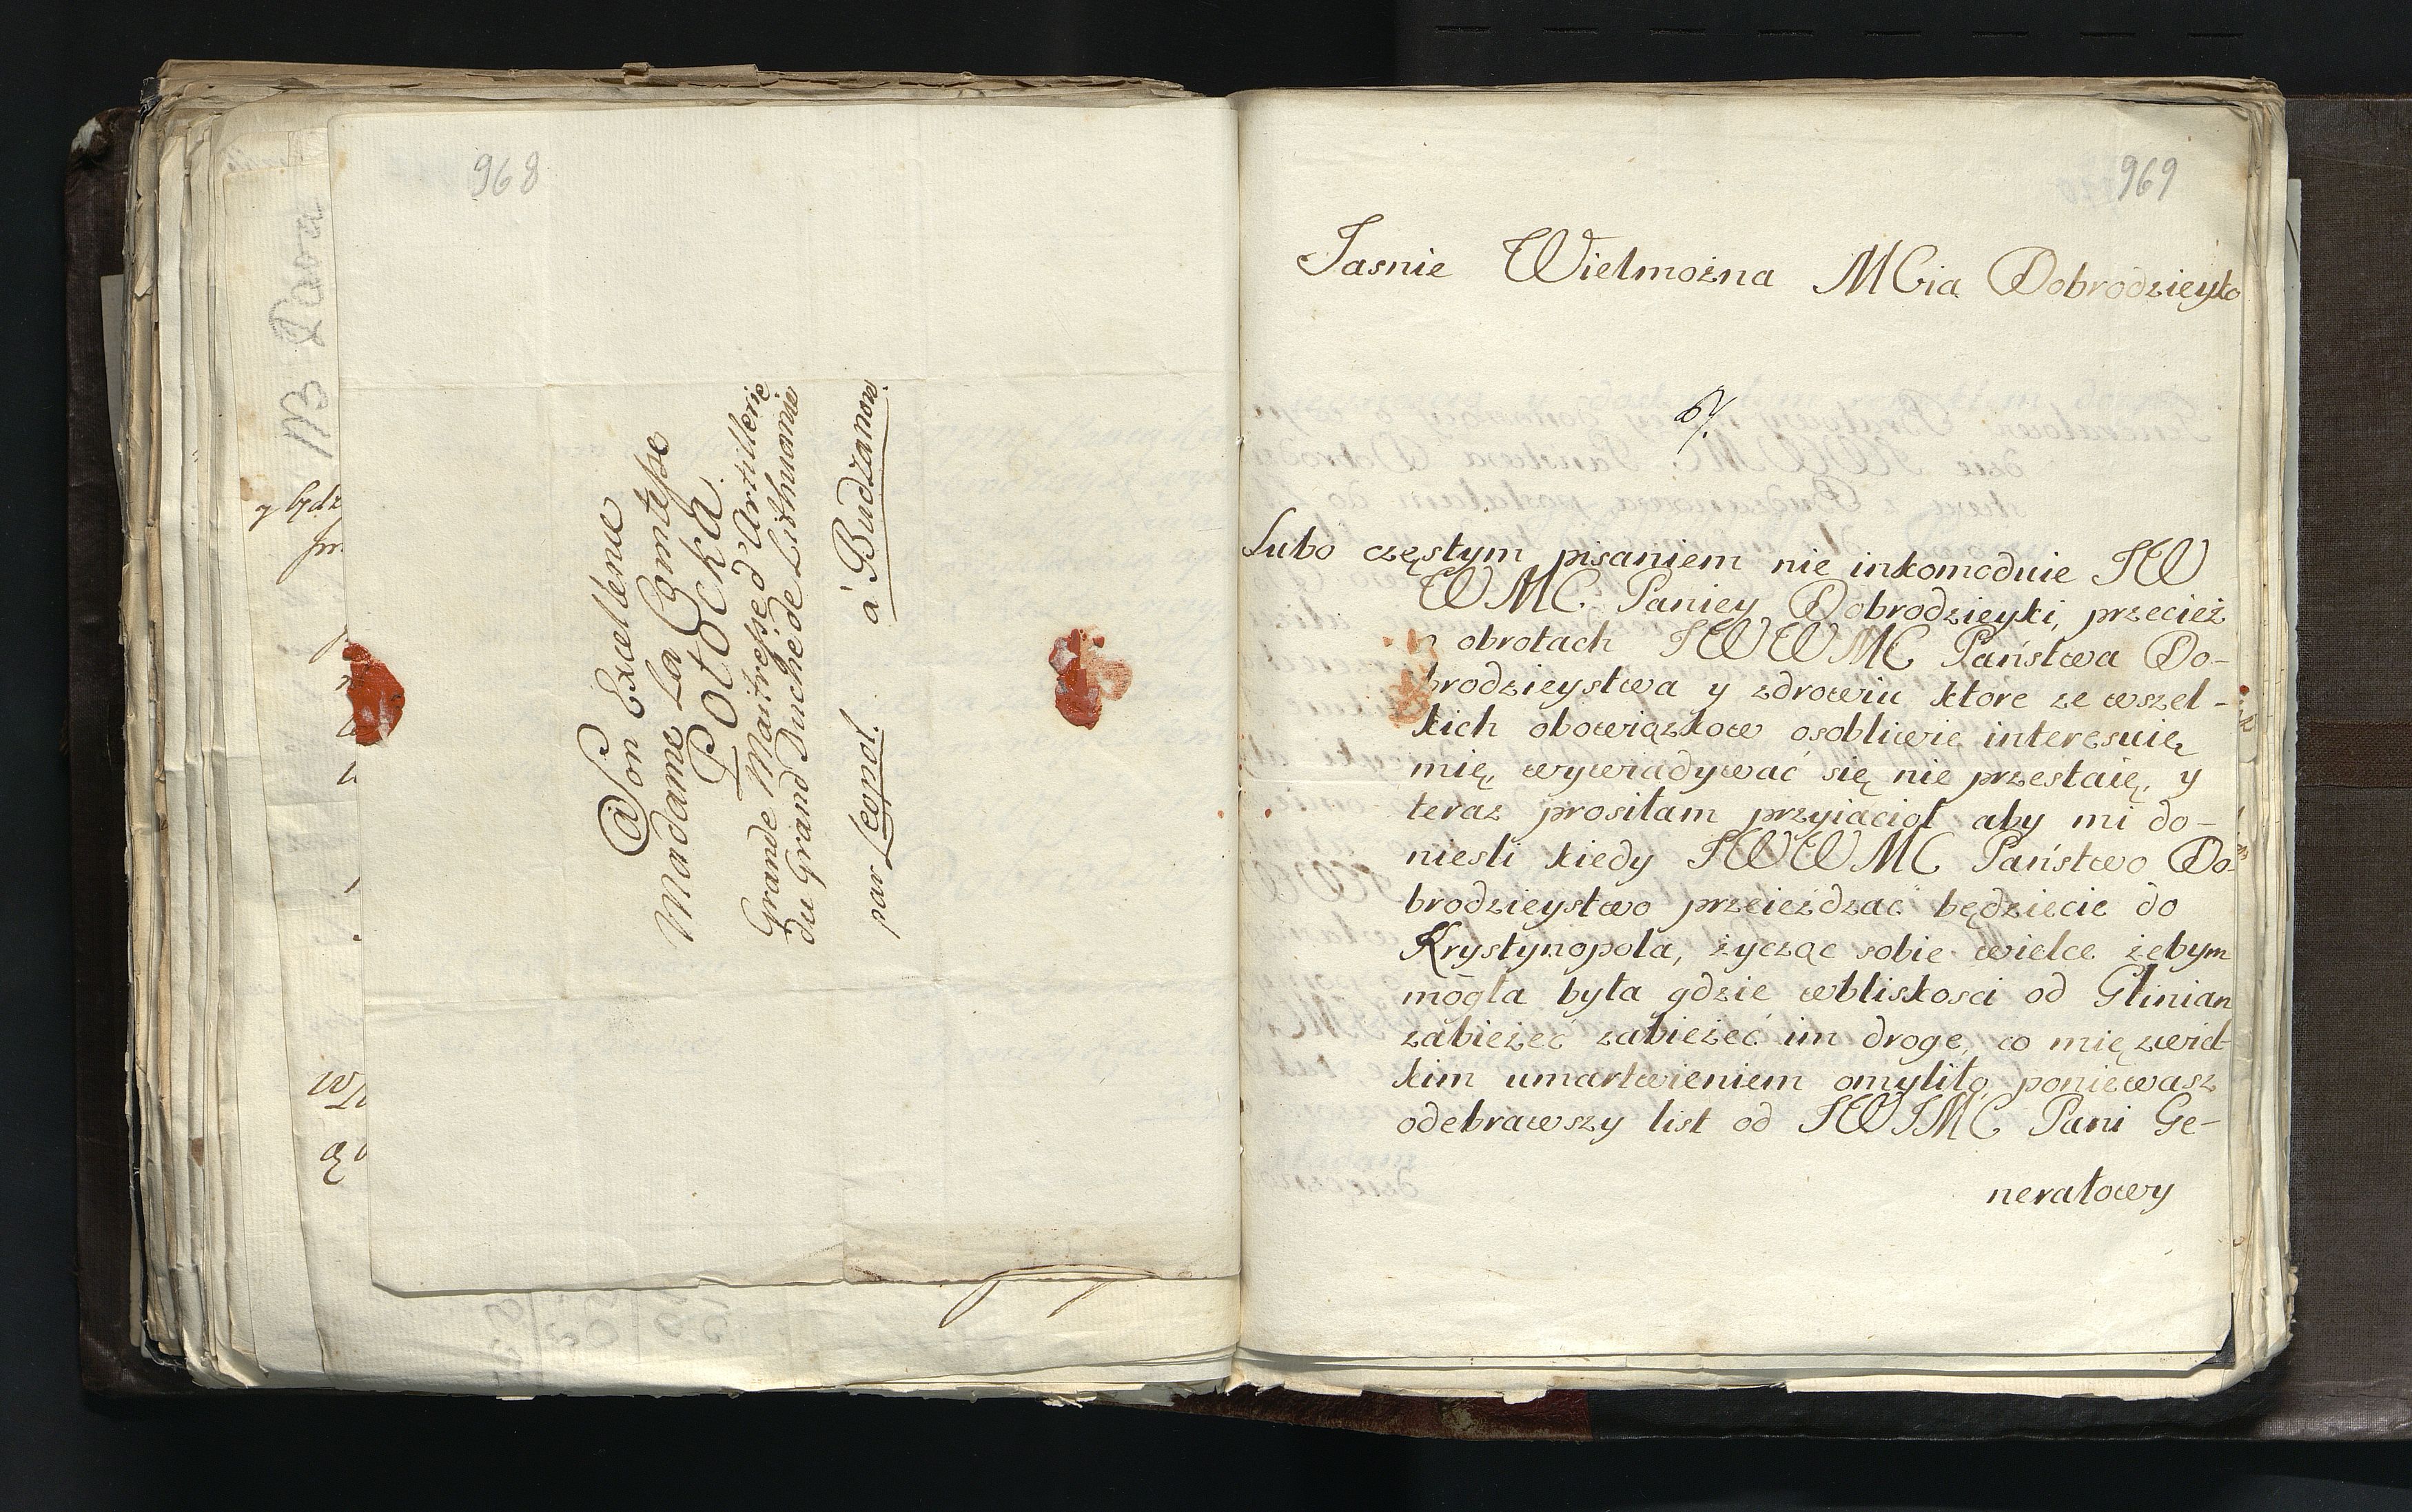 968
a Son Excellence
Madame La Comtesse
Potocka
Grande Maitresse d'Artillerie
du Grand Duché de Lithuanie
par Leopol. à Budzanow.
969
Jasnie Wielmożna MCia Dobrodzieyko
Lubo częstym pisaniem nie inkomoduie JW
WMC. Paniey Dobrodzieyki, przecież
o obrotach JWWMC Państwa Do-
brodzieystwa y zdrowiu ktore ze wszel-
kich obowiązkow osobliwie interesuię
mię, wywiadywać się nie przestaię, y
teraz prosiłam przyiacioł aby mi do-
niesli kiedy JWWMC Państwo Do-
brodzieystwo przeieżdzać będziecie do
Krystynopola, życząc sobie wielce żebym
mogła była gdzie wbliskosci od Glinian
zabieżeć zabieżeć im drogę, co mię zwiel-
kim umartwieniem omyliło, poniewasz
odebrawszy list od JWJMC Pani Ge-
nerałowy